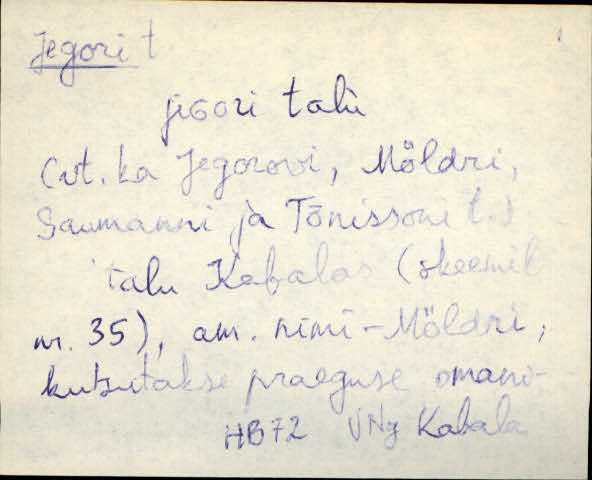 Jegori t
jegori talu
(vt. ka Jegorovi, Möldri,
Saumanni ja Tõnissoni t.)
talu Kabalas (skeemil
nr. 35), am. nimi - Möldri,
kutsutakse praeguse omani-
HB72 VNg Kabala